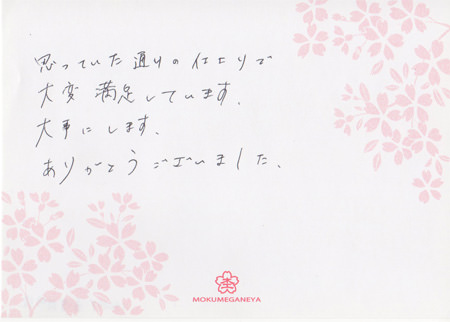 思っていた通りの仕上りで
大変満足しています。
大事にします。
ありがとうございました。
MOKUMEGANEYA